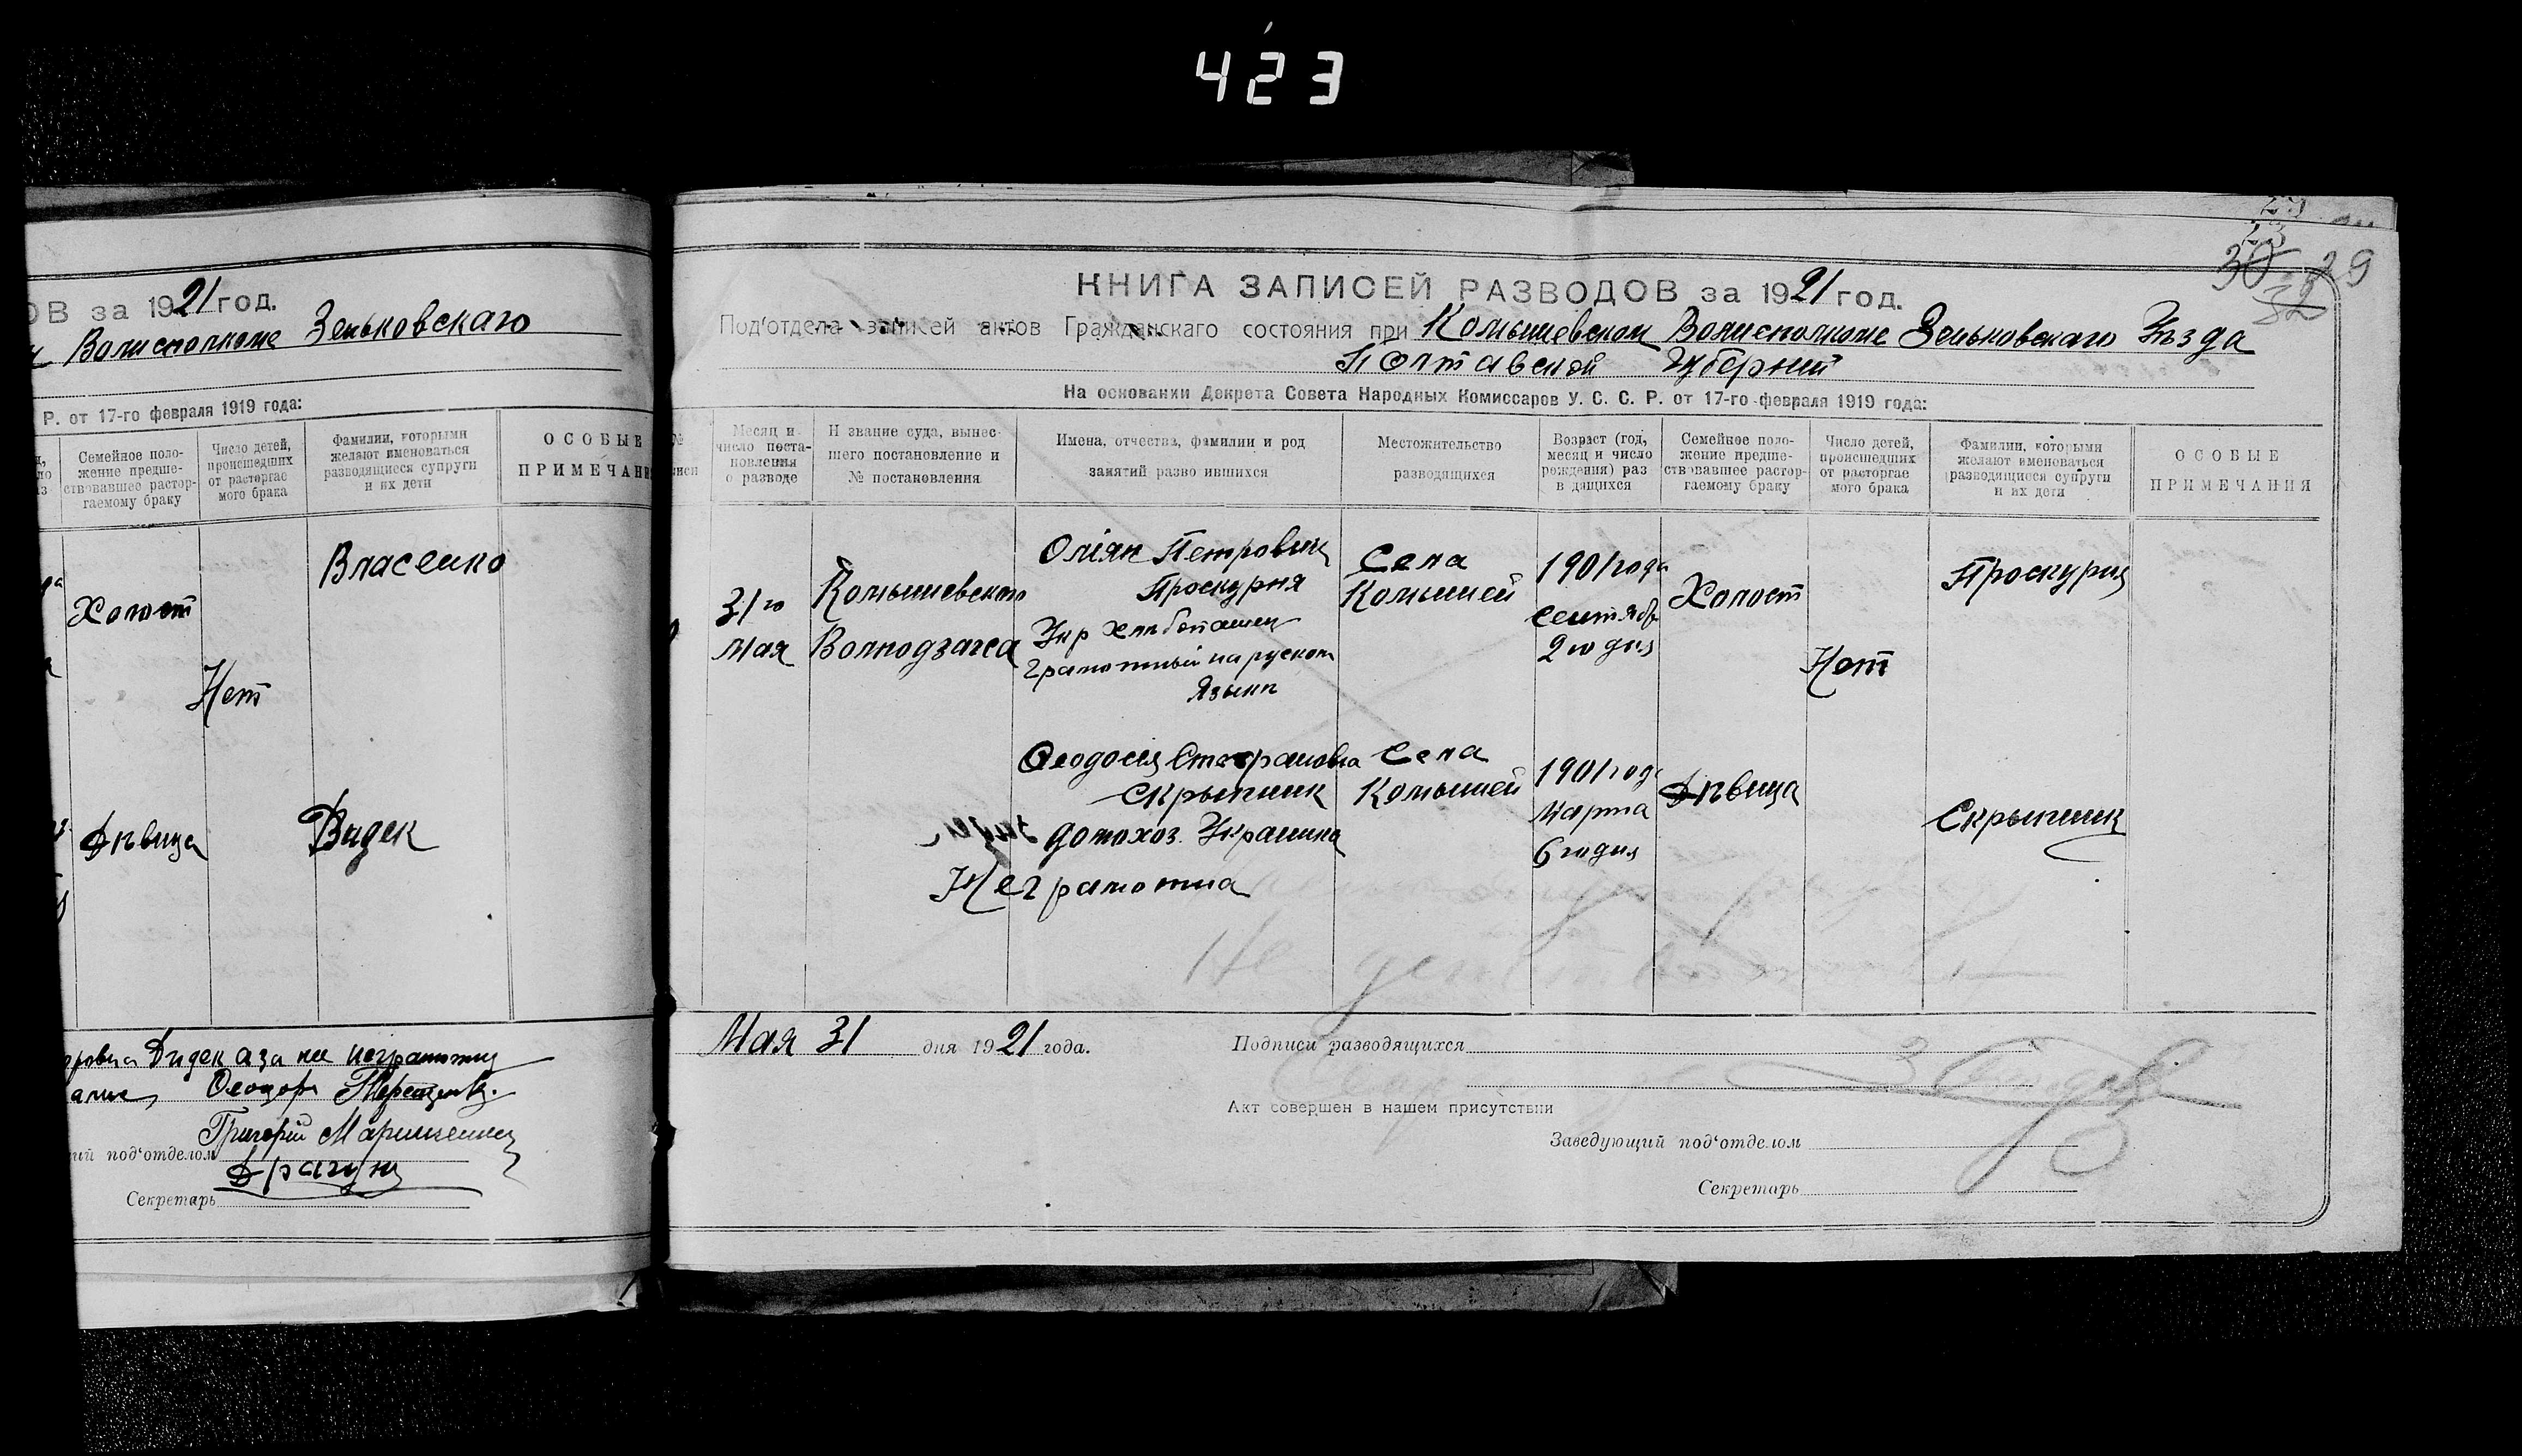 423
ОВ за 1921 год.
Волисполкоме Зеньковскаго
Р. от 17-го февраля 1919 года:
Семейное поло-
жение предше-
ствовавшее растор-
гаемому браку
Число детей,
происшедших
от расторгае
мого брака
Фамилии, которыми
желают именоваться
разводящиеся супруги
и их дети
ОСОБЫЕ
ПРИМЕЧАНИ
Власенко
Холост
Нет
Дѣвица
Дидек
Дидек а за нее неграмотну
Григорій
ий под'отделом
Драгун
Секретарь
29
30
32
КНИГА ЗАПИСЕЙ РАЗВОДОВ за 1921 год.
Под'отдела записей актов Гражданскаго состояния при Комышевском Волисполкоме Зеньковскаго Уѣзда
Полтавской Губернии
На основании Декрета Совета Народных Комиссаров У. С. С. Р. от 17-го февраля 1919 года:
Месяц и
число поста-
новления
о разводе
Н звание суда, вынес-
шего постановление и
№ постановления
Имена, отчества, фамилии и род
занятий разво ившихся
Местожительство
разводящихся
Возраст (год,
месяц и число
рождения) раз
в дящихся
Семейное поло-
жение предше-
ствовавшее растор-
гаемому браку
Число детей,
происшедших
от расторгае
мого брака
Фамилии, которыми
желают именоваться
разводящиеся супруги
и их дети
ОСОБЫЕ
ПРИМЕЧАНИЯ
31го
Мая
Комышевского
Волподзагса
Оліян Петрович
Проскурня
Укр хлѣбопашец
Грамотный на руском
Языкѣ
Села
Комышей
1901 года
Сентября
2 го дня
Холост
Нет
Проскурня
Феодосия Стефановна
Скрыпник
домохоз. Украинка
Неграмотна
Села
Комышей
1901 года
Марта
6 го дня
Дѣвица
Скрыпник
Не
Мая 31 дня 1921 года.
Подписи разводящихся
Акт совершен в нашем присутствии
Заведующий под'отделом
Секретарь